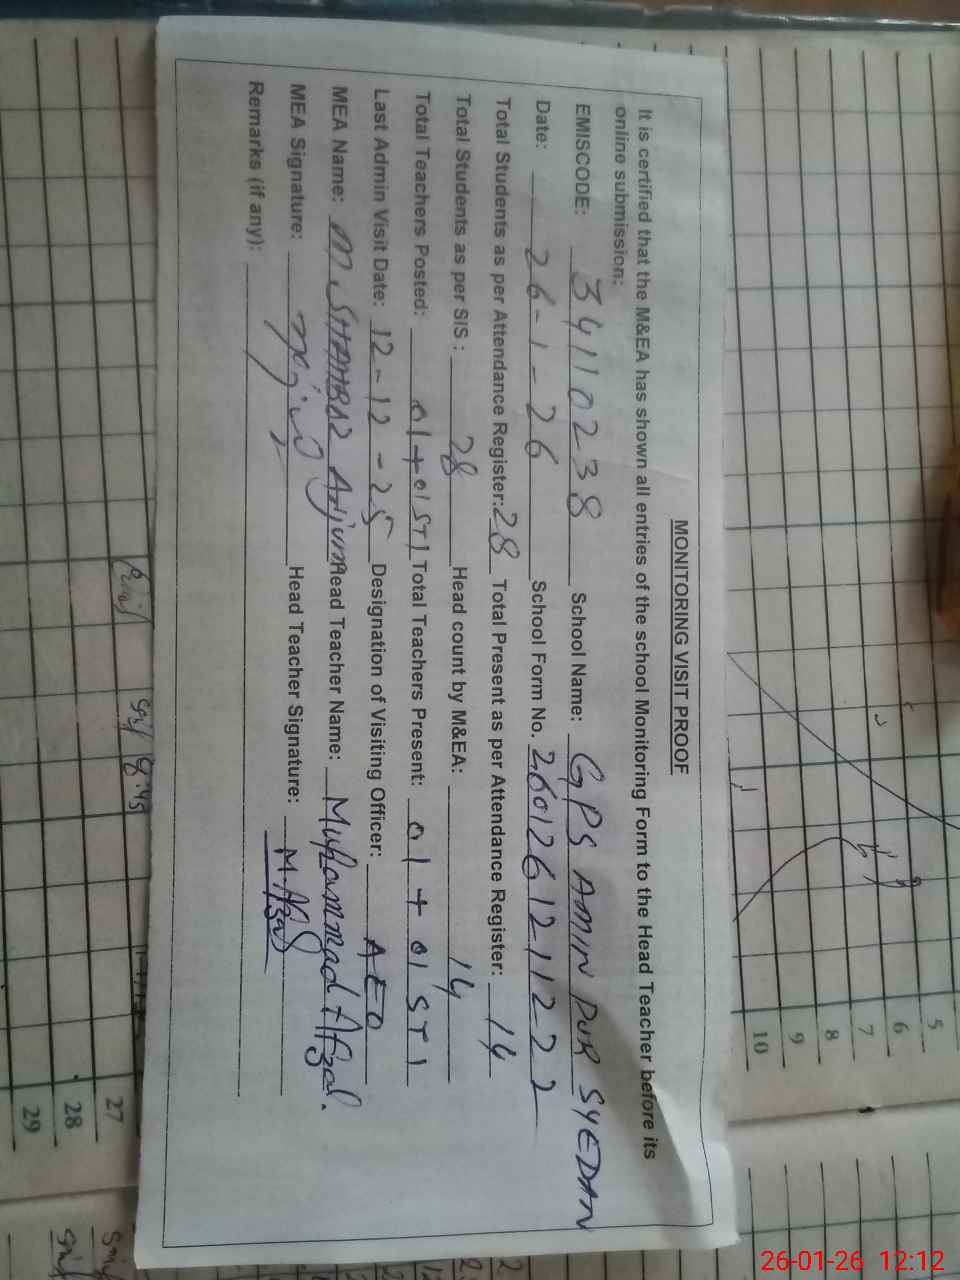 MONITORING VISIT PROOF
It is certified that the M&EA has shown all entries of the school Monitoring Form to the Head Teacher before its
online submission:
EMISCODE: 34110238 School Name: GPS AMIN PUR SYEDAN
Date: 26-1-26 School Form No. 26012612111222
Total Students as per Attendance Register: 28 Total Present as per Attendance Register: 14
Total Students as per SIS : 28 Head count by M&EA: 14
Total Teachers Posted: 01+01STI Total Teachers Present: 01+01STI
Last Admin Visit Date: 12-12-25 Designation of Visiting Officer: AEO
MEA Name: M. SHAHBAZ Anjum Head Teacher Name: Muhammad Afzal.
MEA Signature: Head Teacher Signature: M.Afzal
Remarks (if any):
5
6
7
8
9
10
27
28
29
8.45
26-01-26 12:12